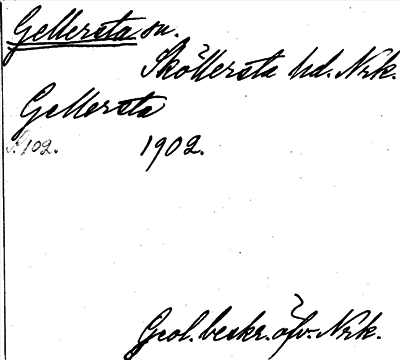 Gellersta sn.
Sköllersta hd. Nrk.
Gellersta
S. 102. 1902.
Geol. beskr. öfv. Nrk.